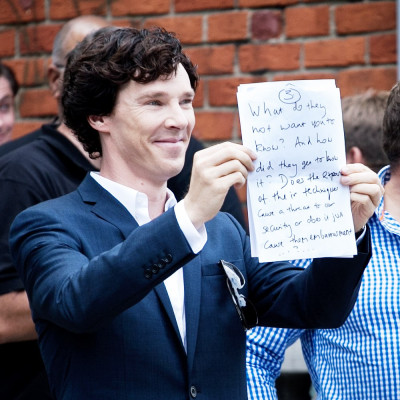 3
What do they
not want you to
know? And how
did they get to know
it? Does the exposure
of their techniques
cause a threat to our
security or does it just
cause them embarrassment
?